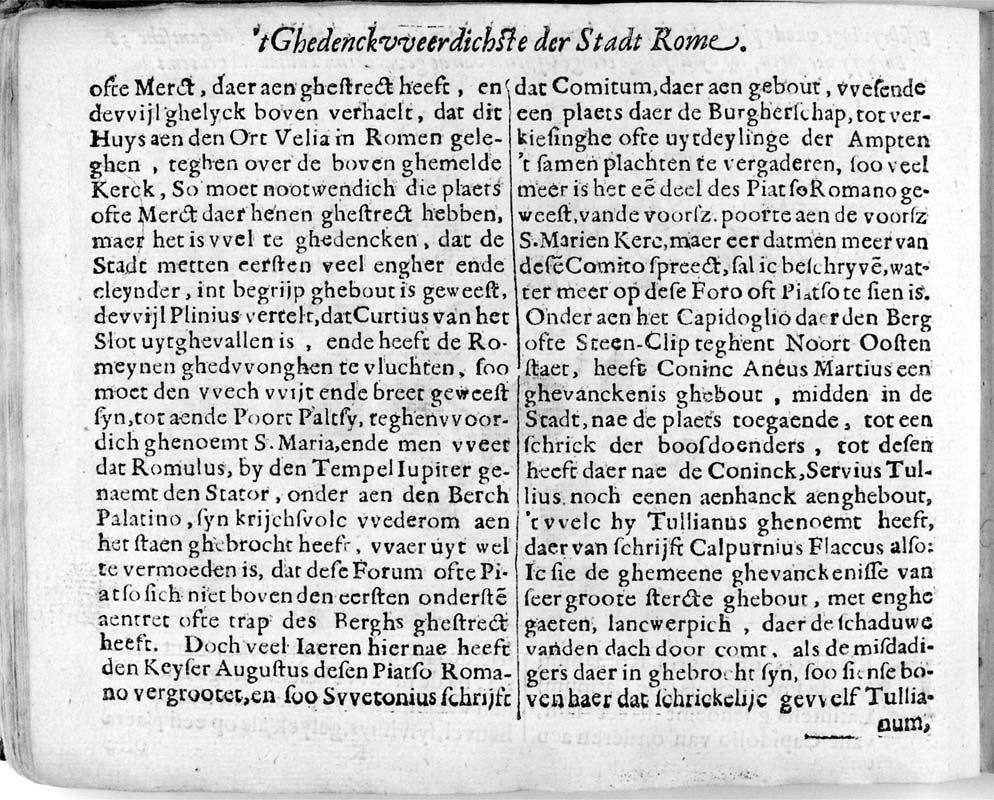 'tGhedenckvveerdichste der Stadt Rome.
ofte Merct, daer aen ghestrect heeft, en
devvijl ghelyck boven verhaelt, dat dit
Huys aen den Ort Velia in Romen gele-
ghen, teghen over de boven ghemelde
Kerck, So moet nootwendich die plaets
ofte Merct daer henen ghestrect hebben,
maer het is vvel te ghedencken, dat de
Stadt metten eersten veel engher ende
cleynder, int begrijp ghebout is geweest,
devvijl Plinius vertelt, dat Curtius van het
Slot uytghevallen is, ende heeft de Ro-
meynen ghedvvonghen te vluchten, soo
moet den vvech vvijt ende breet geweest
syn, tot aende Poort Paltsy, teghenvvoor-
dich ghenoemt S. Maria, ende men vveet
dat Romulus, by den Tempel Iupiter ge-
naemt den Stator, onder aen den Berch
Palatino, syn krijchsvolc vvederom aen
het staen ghebrocht heeft, vvaer uyt wel
te vermoeden is, dat dese Forum ofte Pi-
atso sich niet boven den eersten onderstē
aentret ofte trap des Berghs ghestrect
heeft. Doch veel Iaeren hier nae heeft
den Keyser Augustus desen Piatso Roma-
no vergrootet, en soo Svvetonius schrijft
dat Comitum, daer aen gebout, vvesende
een plaets daer de Burgherschap, tot ver-
kiesinghe ofte uytdeylinge der Ampten
't samen plachten te vergaderen, soo veel
meer is het eē deel des Piatso Romano ge-
weest, vande voorsz. poorte aen de voorsz
S. Marien Kerc, maer eer datmen meer van
desē Comito spreect, sal ic beschryvē, wat-
ter meer op dese Foro oft Piatso te sien is.
Onder aen het Capidoglio daer den Berg
ofte Steen-Clip teghent Noort Oosten
staet, heeft Coninc Aneus Martius een
ghevanckenis ghebout, midden in de
Stadt, nae de plaets toegaende, tot een
schrick der boosdoenders, tot desen
heeft daer nae de Coninck, Servius Tul-
lius, noch eenen aenhanck aenghebout,
't vvelc hy Tullianus ghenoemt heeft,
daer van schrijft Calpurnius Flaccus also:
Ic sie de ghemeene ghevanckenisse van
seer groote stercte ghebout, met enghe
gaeten, lancwerpich, daer de schaduwe
vanden dach door comt, als de misdadi-
gers daer in ghebrocht syn, soo siense bo-
ven haer dat schrickelijc gevvelf Tullia-
num,